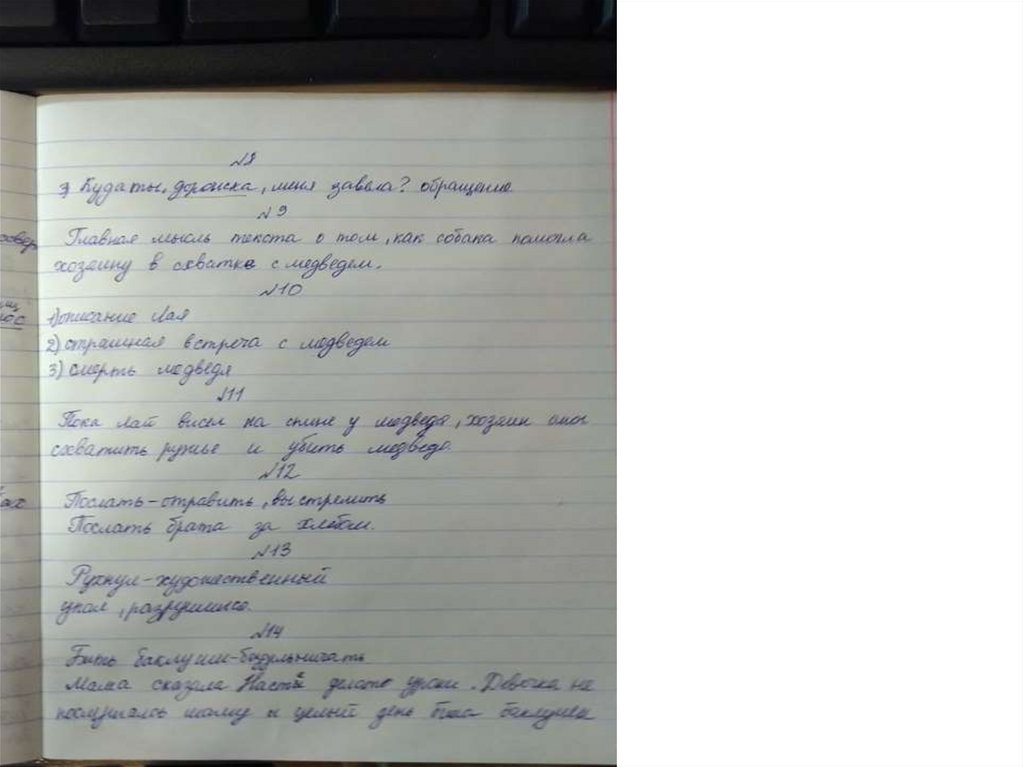 №8
3) Куда ты, дорожка, меня завела? обращение
№9
Главная мысль текста о том, как собака помогла
хозяину в схватке с медведем.
№10
1) описание Лая
2) страшная встреча с медведем
3) смерть медведя
№11
Пока Лай висел на спине у медведя, хозяин смог
схватить ружье и убить медведя.
№12
Послать - отправить, выстрелить
Послать брата за хлебом.
№13
Рухнул - художественный
упал, разрушился.
№14
Бить баклуши - бездельничать
Мама сказала Насте делать уроки. Девочка не
послушалась маму и целый день била баклуши